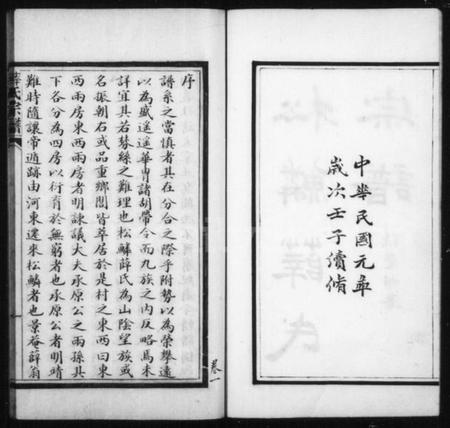 中華民國元年
歲次壬子續修
序
譜系之當慎者其在分合之際乎附勢以為榮舉遠
以為盛遥遥華胄諸胡帶令而九族之內反略焉未
詳宜其若棼絲之難理也松麟薛氏為山陰望族或
名振朝右或品重鄉閭皆萃居於是村之東西曰東
西兩房東西兩房者明諫議大夫承原公之兩孫其
下各分為四房以衍育於無窮者也承原公者明靖
難時隨讓帝遁跡由河東遷來松麟者也景菴薛翁
薛氏宗譜
卷一